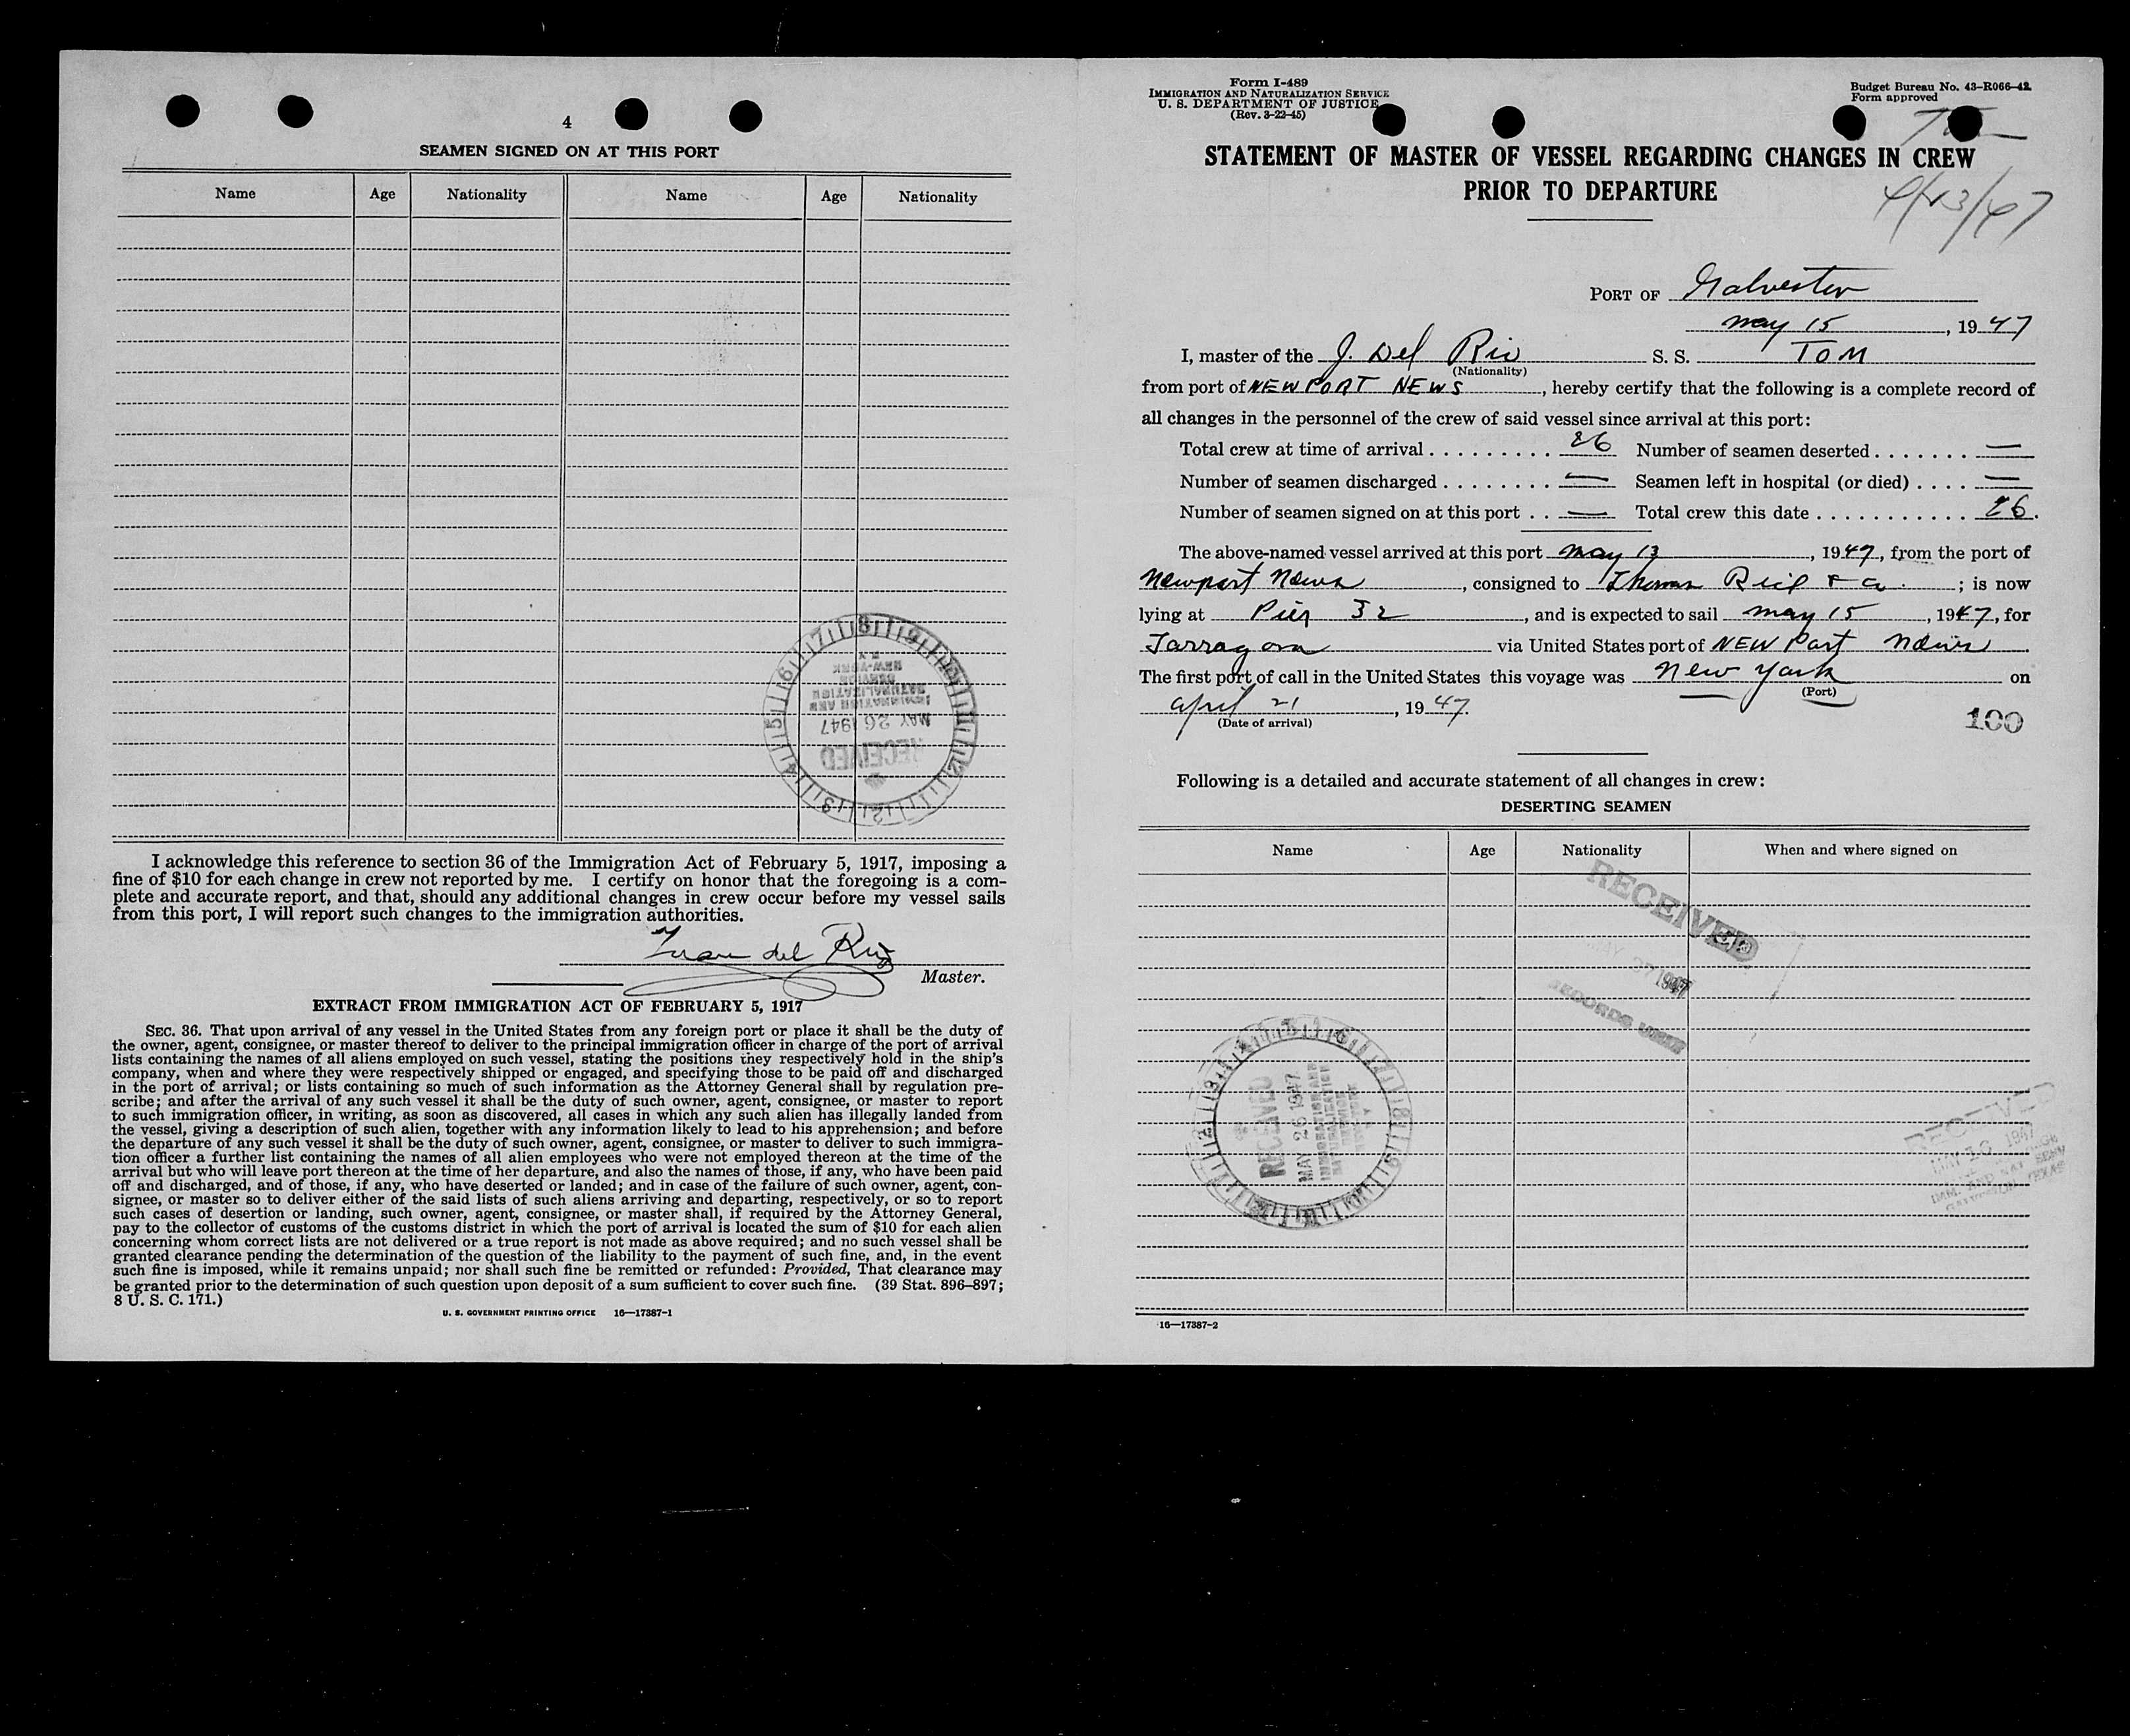 4
SEAMEN SIGNED ON AT THIS PORT
Name Age Nationality Name Age Nationality
RECEIVED
MAY 26 1947
IMMIGRATION AND
NATURALIZATION
SERVICE
NEW-YORK
N.Y.
I acknowledge this reference to section 36 of the Immigration Act of February 5, 1917, imposing a
fine of $10 for each change in crew not reported by me. I certify on honor that the foregoing is a com-
plete and accurate report, and that, should any additional changes in crew occur before my vessel sails
from this port, I will report such changes to the immigration authorities.
Juan del Rio
Master.
EXTRACT FROM IMMIGRATION ACT OF FEBRUARY 5, 1917
SEC. 36. That upon arrival of any vessel in the United States from any foreign port or place it shall be the duty of
the owner, agent, consignee, or master thereof to deliver to the principal immigration officer in charge of the port of arrival
lists containing the names of all aliens employed on such vessel, stating the positions they respectively hold in the ship's
company, when and where they were respectively shipped or engaged, and specifying those to be paid off and discharged
in the port of arrival; or lists containing so much of such information as the Attorney General shall by regulation pre-
scribe; and after the arrival of any such vessel it shall be the duty of such owner, agent, consignee, or master to report
to such immigration officer, in writing, as soon as discovered, all cases in which any such alien has illegally landed from
the vessel, giving a description of such alien, together with any information likely to lead to his apprehension; and before
the departure of any such vessel it shall be the duty of such owner, agent, consignee, or master to deliver to such immigra-
tion officer a further list containing the names of all alien employees who were not employed thereon at the time of the
arrival but who will leave port thereon at the time of her departure, and also the names of those, if any, who have been paid
off and discharged, and of those, if any, who have deserted or landed; and in case of the failure of such owner, agent, con-
signee, or master so to deliver either of the said lists of such aliens arriving and departing, respectively, or so to report
such cases of desertion or landing, such owner, agent, consignee, or master shall, if required by the Attorney General,
pay to the collector of customs of the customs district in which the port of arrival is located the sum of $10 for each alien
concerning whom correct lists are not delivered or a true report is not made as above required; and no such vessel shall be
granted clearance pending the determination of the question of the liability to the payment of such fine, and, in the event
such fine is imposed, while it remains unpaid; nor shall such fine be remitted or refunded: Provided, That clearance may
be granted prior to the determination of such question upon deposit of a sum sufficient to cover such fine. (39 Stat. 896–897;
8 U. S. C. 171.)
U. S. GOVERNMENT PRINTING OFFICE 16—17387-1
Form I-489
IMMIGRATION AND NATURALIZATION SERVICE
U. S. DEPARTMENT OF JUSTICE
(Rev. 3-22-45)
Budget Bureau No. 43-R066-42.
Form approved
STATEMENT OF MASTER OF VESSEL REGARDING CHANGES IN CREW
PRIOR TO DEPARTURE
PORT OF Galveston
may 15, 1947
I, master of the J. Del Rio S. S. TOM
(Nationality)
from port of NEWPORT NEWS, hereby certify that the following is a complete record of
all changes in the personnel of the crew of said vessel since arrival at this port:
Total crew at time of arrival . . . . . . . . . 26 Number of seamen deserted . . . . . . . —
Number of seamen discharged . . . . . . . . — Seamen left in hospital (or died) . . . . —
Number of seamen signed on at this port . . — Total crew this date . . . . . . . . . . . . 26.
The above-named vessel arrived at this port may 13, 1947, from the port of
Newport News, consigned to Thomas Rice & Co.; is now
lying at Pier 32, and is expected to sail may 15, 1947, for
Tarragona via United States port of NEW Port News
The first port of call in the United States this voyage was New York on
(Port)
April 21, 1947.
(Date of arrival)
100
Following is a detailed and accurate statement of all changes in crew:
DESERTING SEAMEN
Name Age Nationality When and where signed on
RECEIVED
MAY 27 1947
RECORDS UNIT
RECEIVED
MAY 26 1947
IMMIGRATION AND
NATURALIZATION
SERVICE
RECEIVED
MAY 16 1947
IMM. AND NAT SERV
GALVESTON, TEXAS
16—17387-2